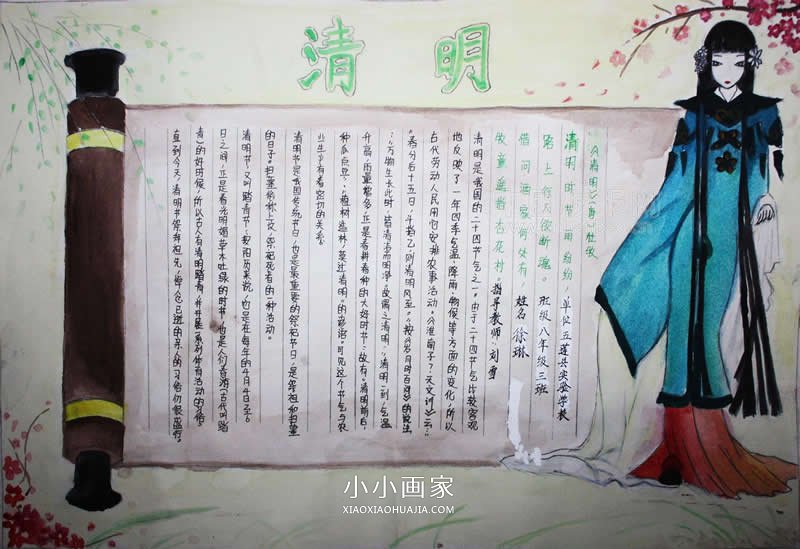 清明
《清明》(唐)杜牧
清明时节雨纷纷,单位五莲县实验学校
路上行人欲断魂。班级八年级三班
借问酒家何处有,姓名徐琳
牧童遥指杏花村。指导教师:刘雪
清明是我国的二十四节气之一。由于二十四节气比较客观
地反映了一年四季气温、降雨、物候等方面的变化,所以
古代劳动人民用它安排农事活动。《淮南子?天文训》云:
"春分后十五日,斗指乙,则清明风至。"按《岁时百问》的说法
:"万物生长此时,皆清洁而明净。故谓之清明。"清明一到,气温
升高,雨量增多,正是春耕春种的大好时节。故有"清明前后,
种瓜点豆"、"植树造林,莫过清明"的农谚。可见这个节气与农
业生产有着密切的关系。
清明节是我国传统节日,也是最重要的祭祀节日,是祭祖和扫墓
的日子。扫墓俗称上坟,祭祀死者的一种活动。
清明节,又叫踏青节,按阳历来说,它是在每年的4月4日至6
日之间,正是春光明媚草木吐绿的时节,也是人们春游(古代叫踏
青)的好时候,所以古人有清明踏青,并开展一系列体育活动的习俗
直到今天,清明节祭拜祖先,悼念已逝的亲人的习俗仍很盛行。
小小画家
XIAOXIAOHUAJIA.COM